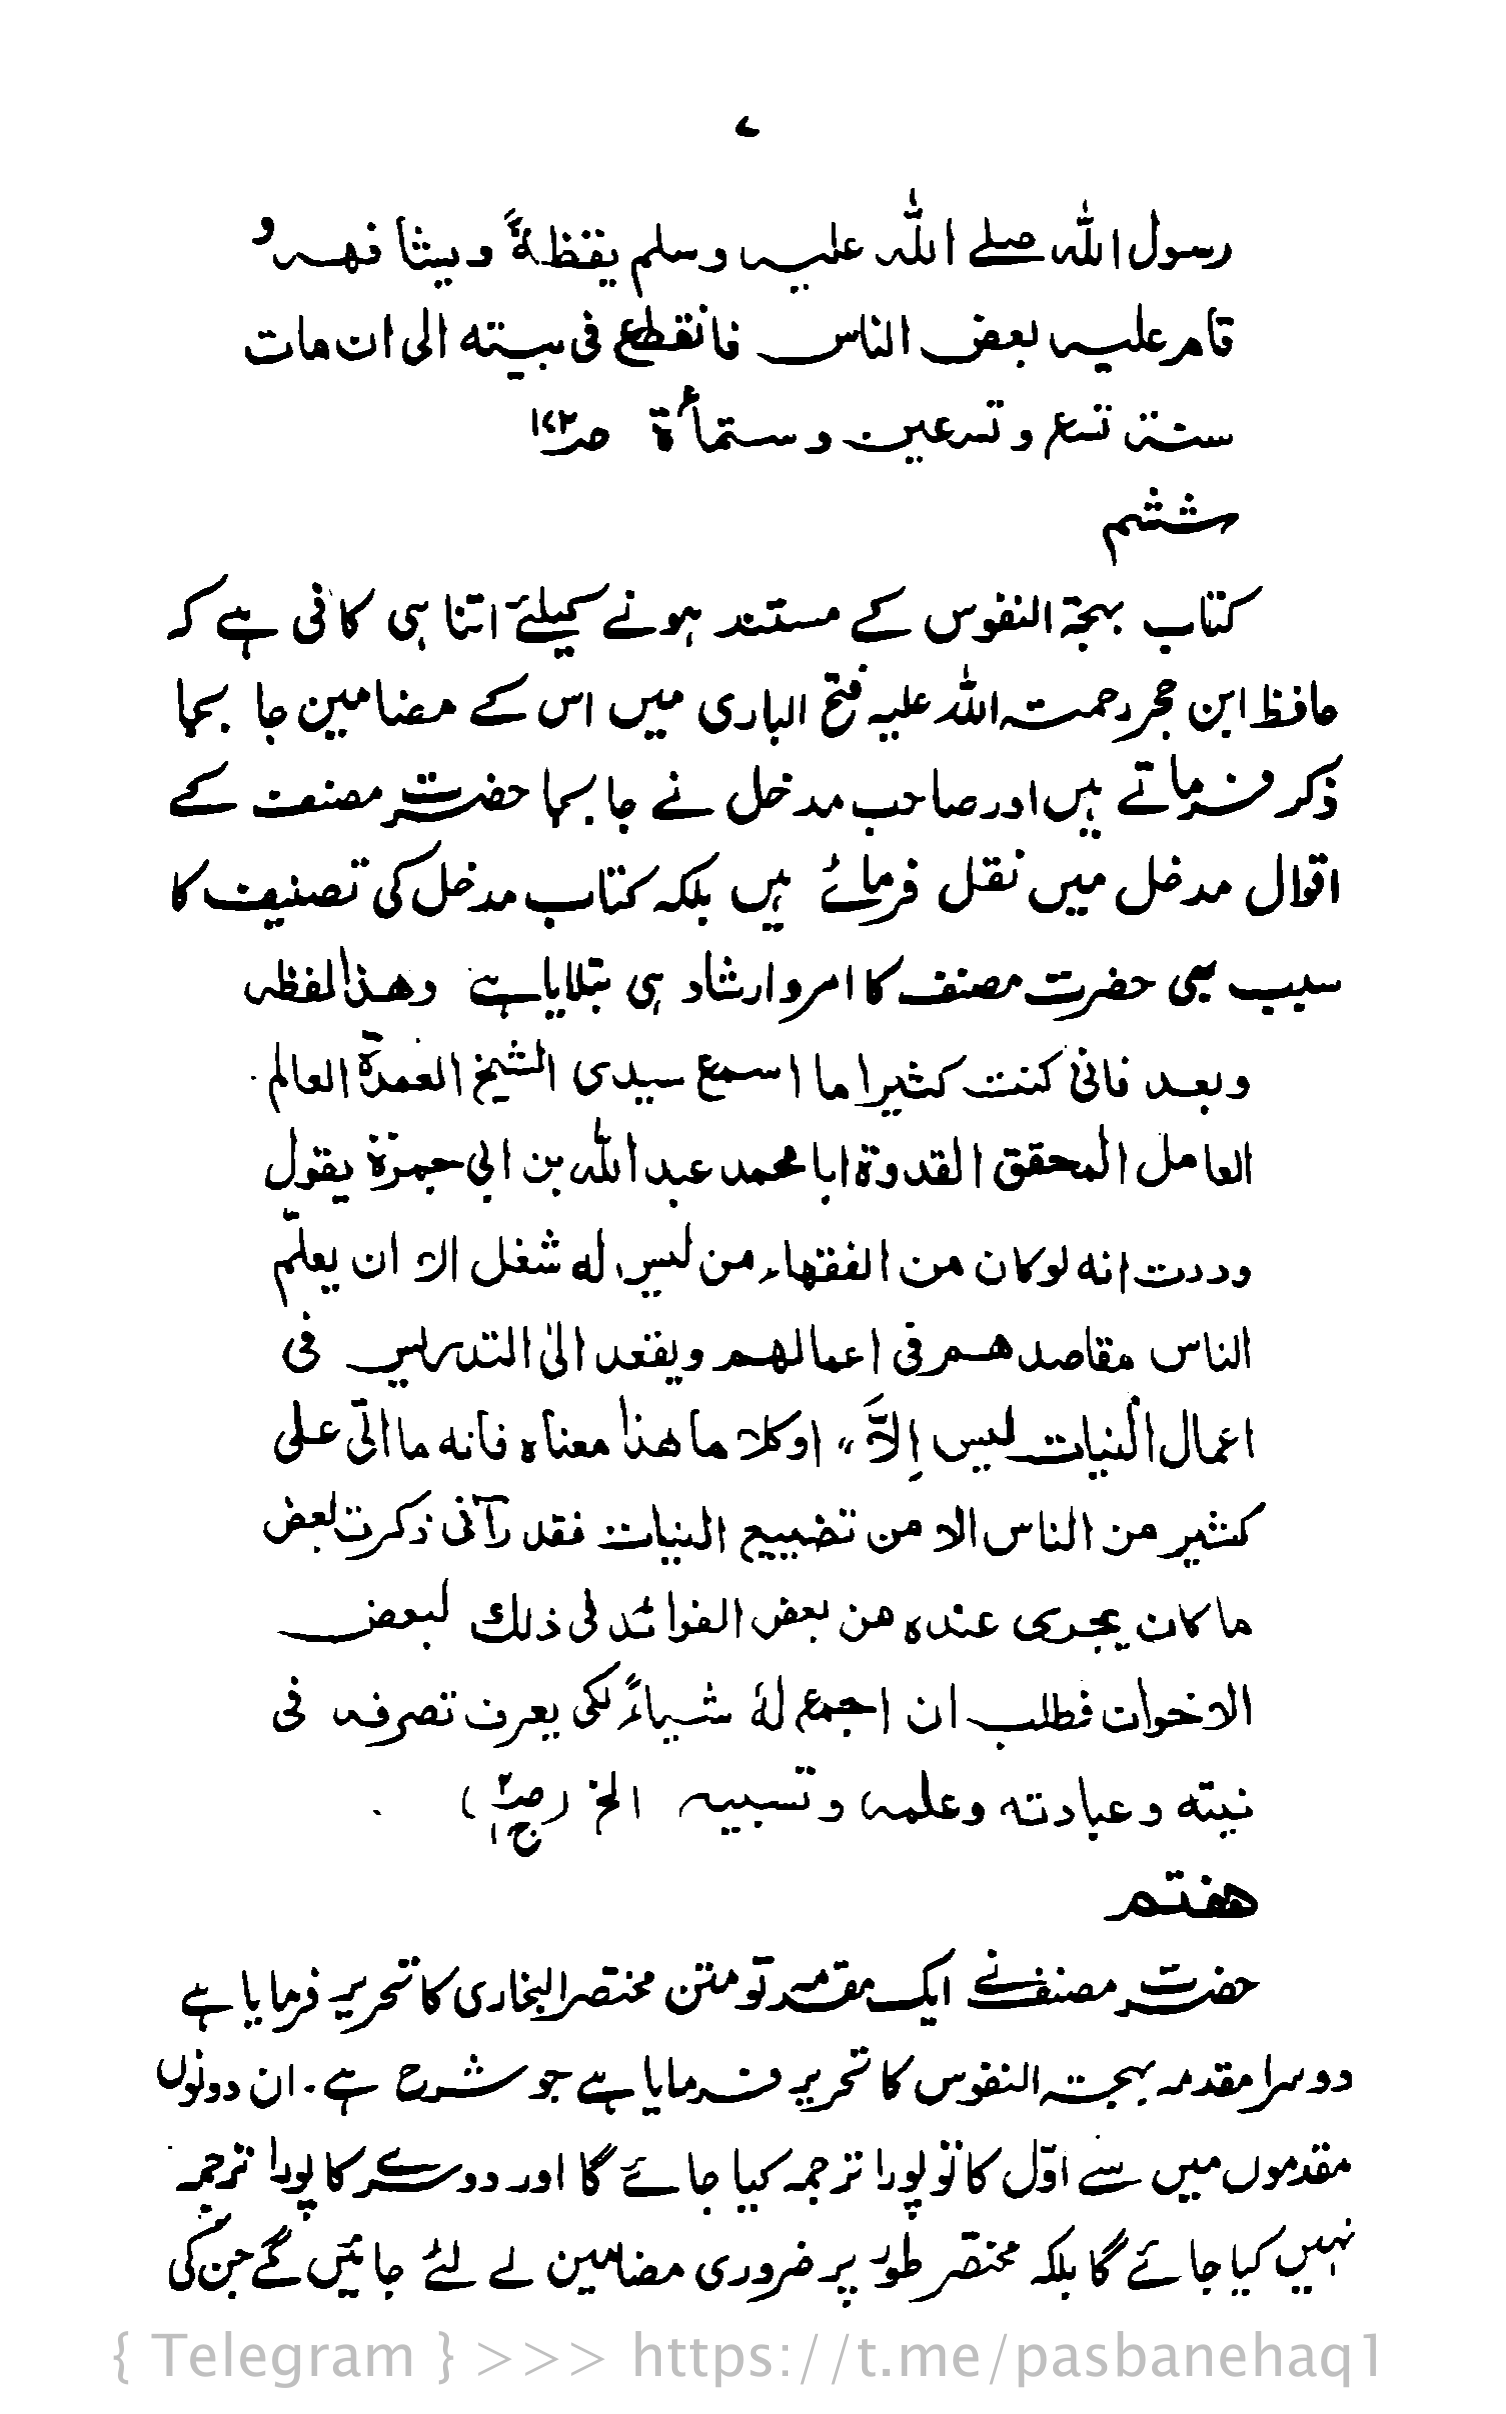 ۷
رسول الله صلے الله علیہ وسلم یقظۃً ویشافہہ و
قام علیہ بعض الناس فانقطع فی بیتہ الی ان مات
سنۃ تسع وتسعین وستمأۃ صـ۱۴۲
ششم
کتاب بہجۃ النفوس کے مستند ہونے کیلئے اتنا ہی کافی ہے کہ
حافظ ابن حجر رحمتہ اللہ علیہ فتح الباری میں اس کے مضامین جا بجا
ذکر فرماتے ہیں اور صاحب مدخل نے جا بجا حضرت مصنف کے
اقوال مدخل میں نقل فرمائے ہیں بلکہ کتاب مدخل کی تصنیف کا
سبب بھی حضرت مصنف کا امر و ارشاد ہی بتلایا ہے وھذا لفظہ
وبعد فانی کنت کثیرا ما اسمع سیدی الشیخ العمدۃ العالم
العامل المحقق القدوۃ ابا محمد عبد اللہ بن ابی حمزۃ یقول
وددت انہ لوکان من الفقہاء من لیس لہ شغل الا ان یعلّم
الناس مقاصدھم فی اعمالھم ویقعد الیٰ التدریس فی
اعمال النیات لیس اِلاَّ، اوکلا ما ھذا معناہ فانہ ما اتی علی
کثیر من الناس الا من تضییع النیات فقد رآنی ذکرت لبعض
ما کان یجری عندہ من بعض الفوائد لی ذلك لبعض
الاخوات فطلب ان اجمع لہٗ شیاءً لکی یعرف تصرفہ فی
نیتہ وعبادتہ وعلمہ وتسبیہ الخ (صـ۲ ج۱)
ھفتم
حضرت مصنف نے ایک مقدمہ تو متن مختصر البخاری کا تحریر فرمایا ہے
دوسرا مقدمہ بہجتہ النفوس کا تحریر فرمایا ہے جو شرح ہے۔ ان دونوں
مقدموں میں سے اوّل کا تو پورا ترجمہ کیا جائے گا اور دوسرے کا پورا ترجمہ
نہیں کیا جائے گا بلکہ مختصر طور پر ضروری مضامین لے لئے جائیں گے جن کی
{ Telegram } >>> https://t.me/pasbanehaq1